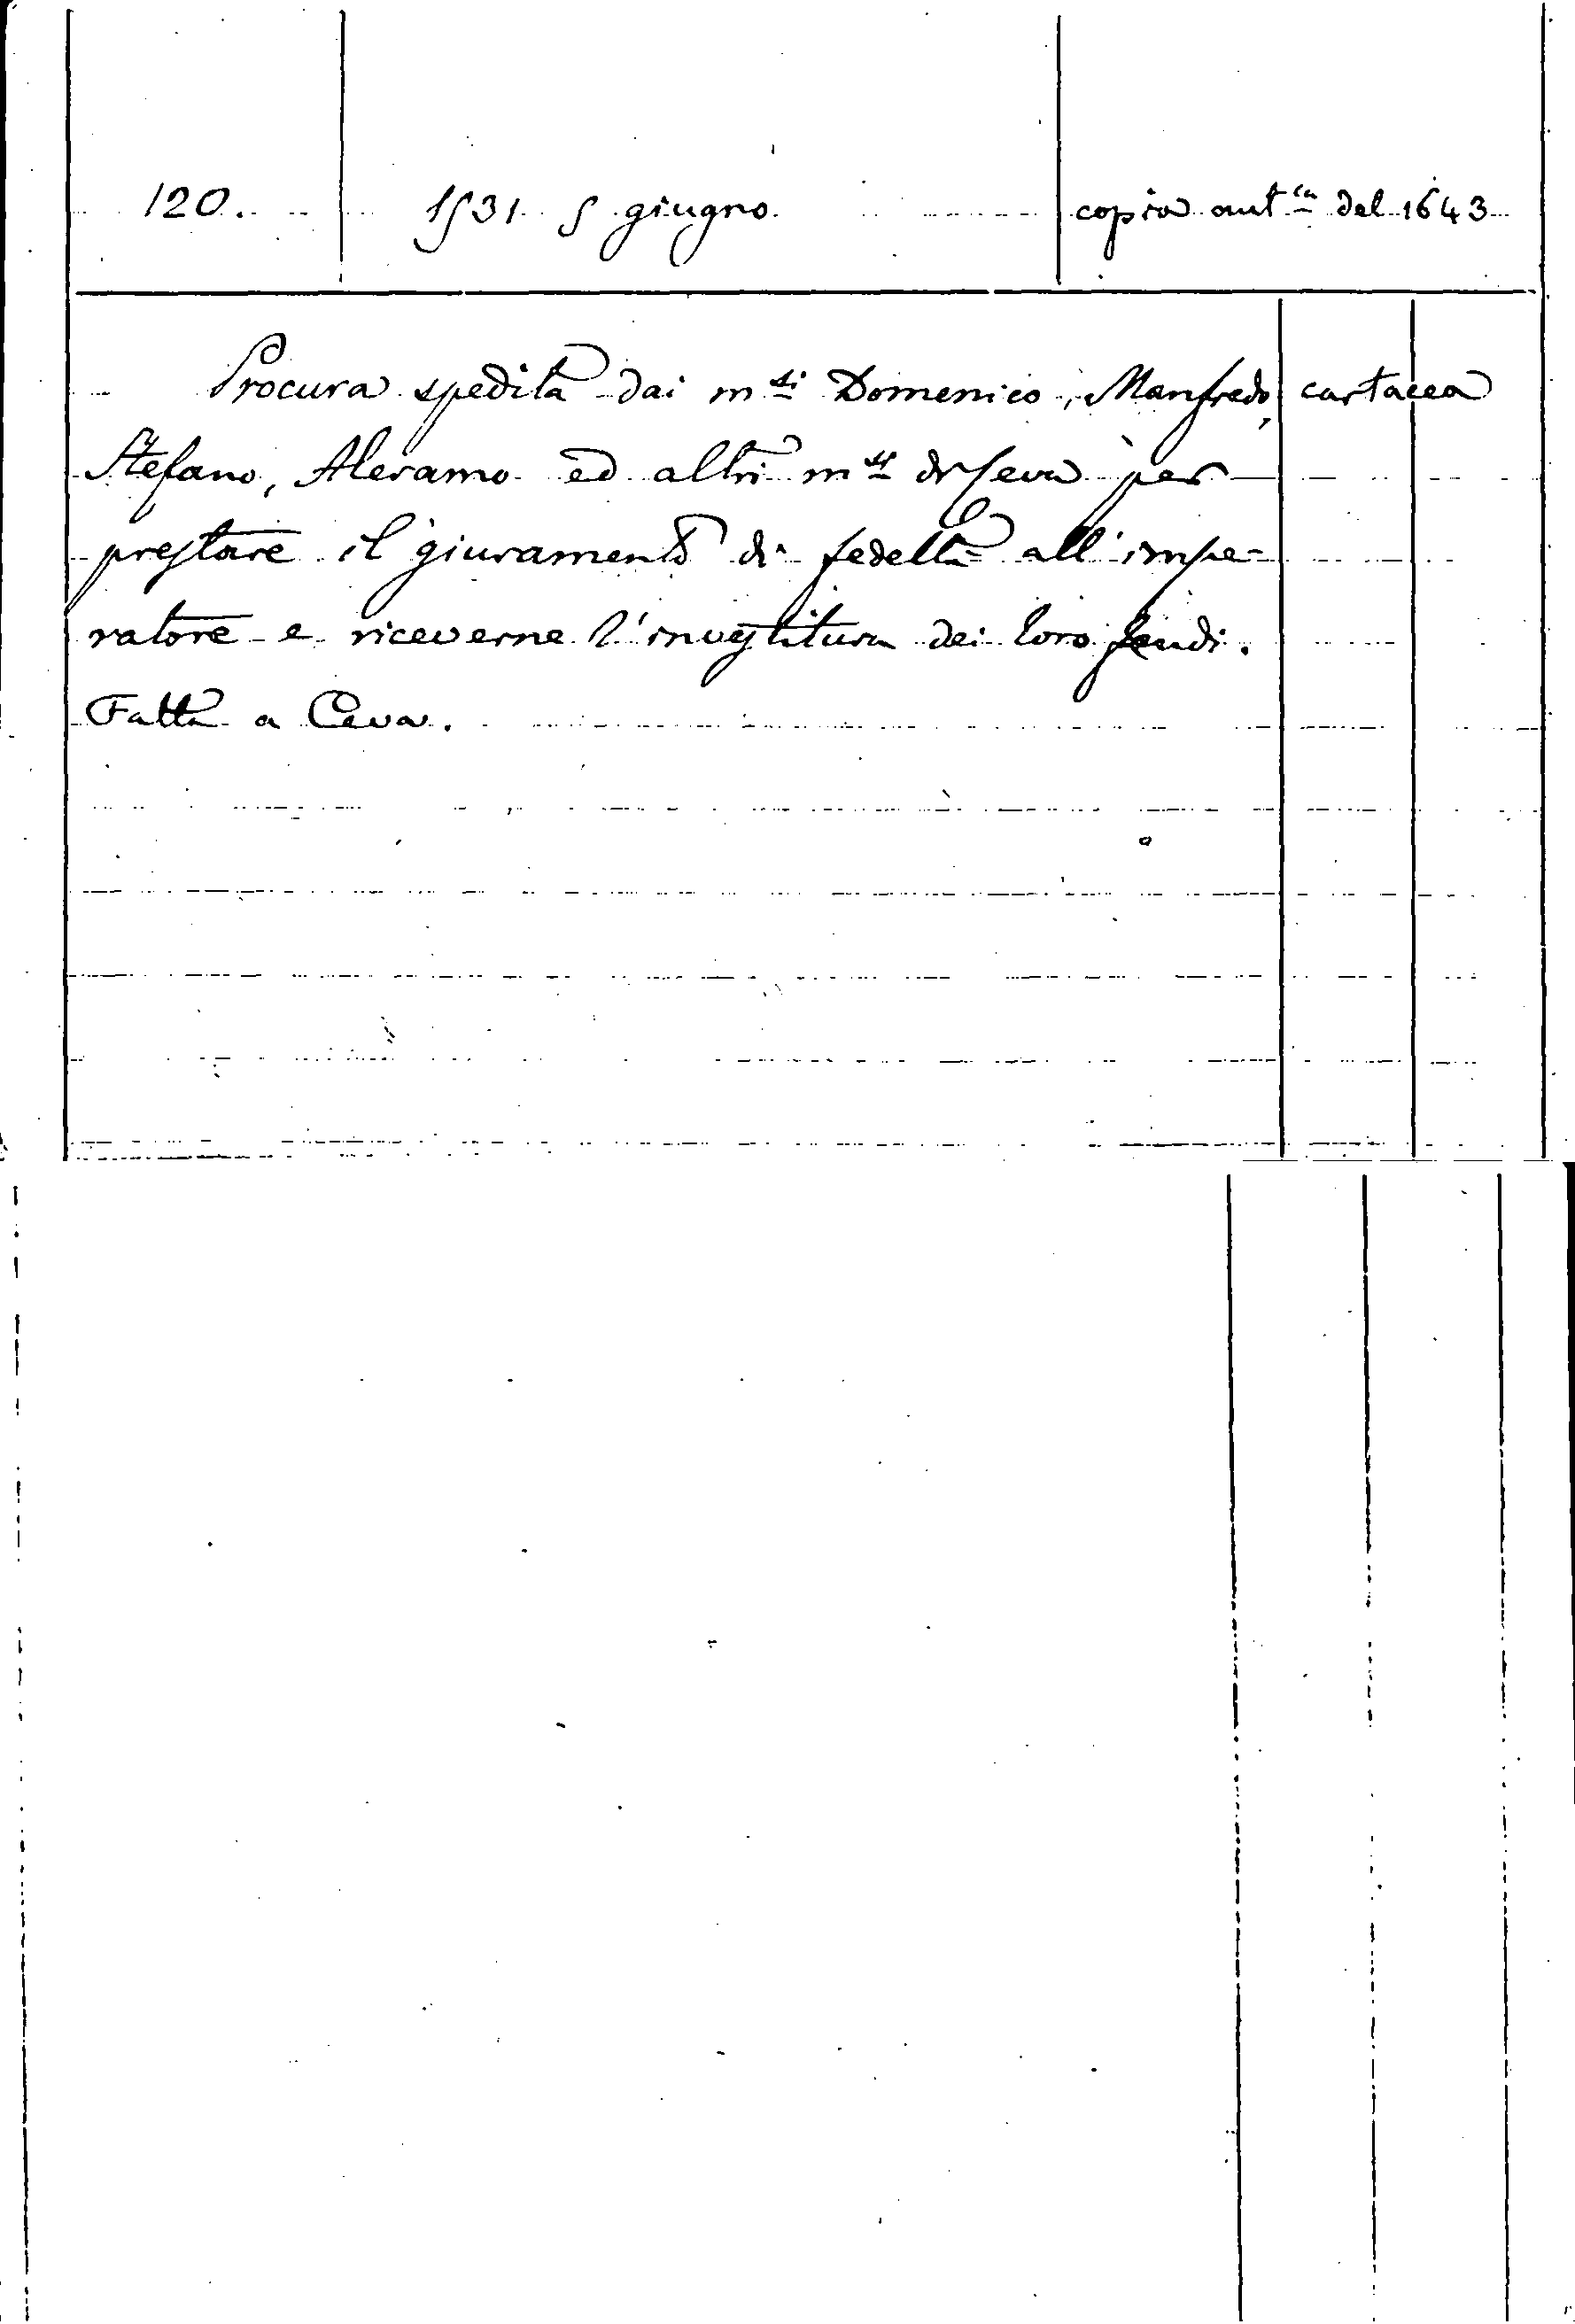 120. 1531 5 giugno. copia aut.ca del 1643
Procura spedita dai m.si Domenico, Manfredo, cartacea
Stefano, Aleramo ed altri m.si di Ceva per
prestare il giuramento di fedeltà all'impe-
ratore e riceverne l'investitura dei loro feudi.
Fatta a Ceva.